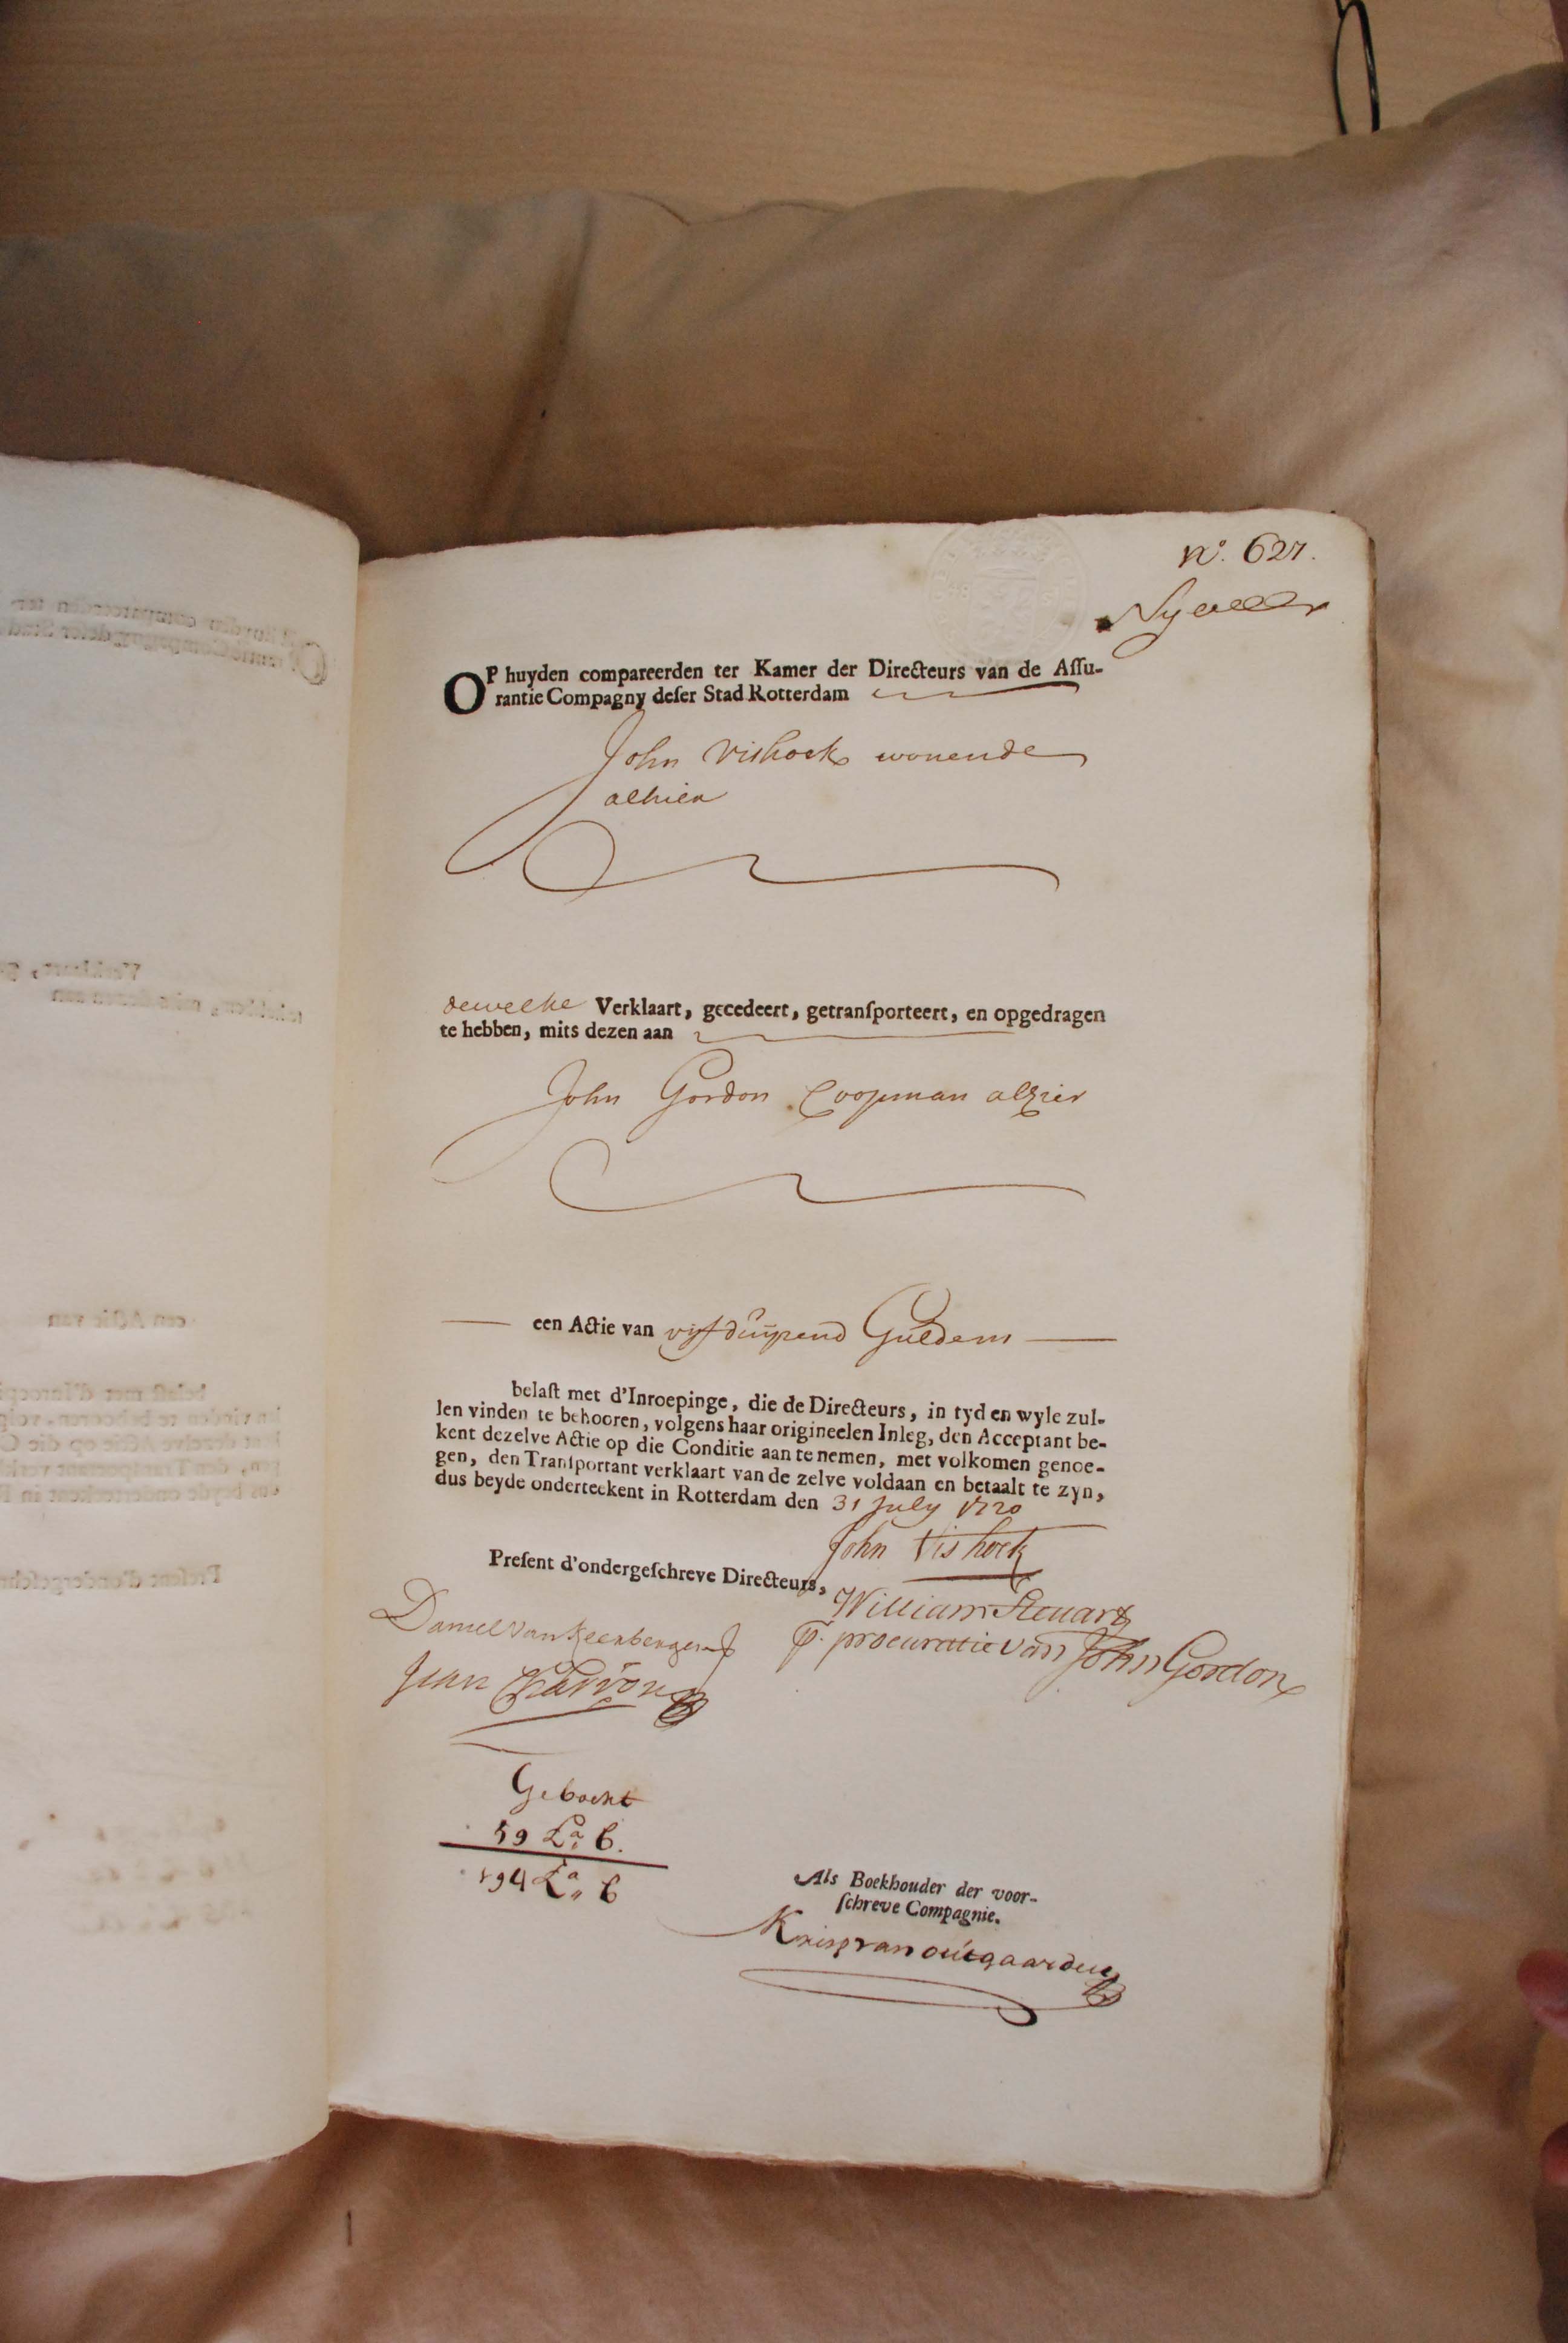 No. 627.
OP huyden compareerden ter Kamer der Directeurs van de Assu-
rantie Compagny deser Stad Rotterdam
John Vishoek wonende
alhier
dewelke Verklaart, gecedeert, getransporteert, en opgedragen
te hebben, mits dezen aan
John Gordon Coopman alhier
een Actie van vijfduijsend Guldens
belast met d'Inroepinge, die de Directeurs, in tyd en wyle zul-
len vinden te behooren, volgens haar origineelen Inleg, den Acceptant be-
kent dezelve Actie op die Conditie aan te nemen, met volkomen genoe-
gen, den Transportant verklaart van de zelve voldaan en betaalt te zyn,
dus beyde onderteekent in Rotterdam den 31 July 1720
John Vishoek
Present d'ondergeschreve Directeurs,
William Steuart
p. procuratie van John Gordon
Daniel van
Jean
Geboekt
59 La. C.
194 La. C
Als Boekhouder der voor-
schreve Compagnie.